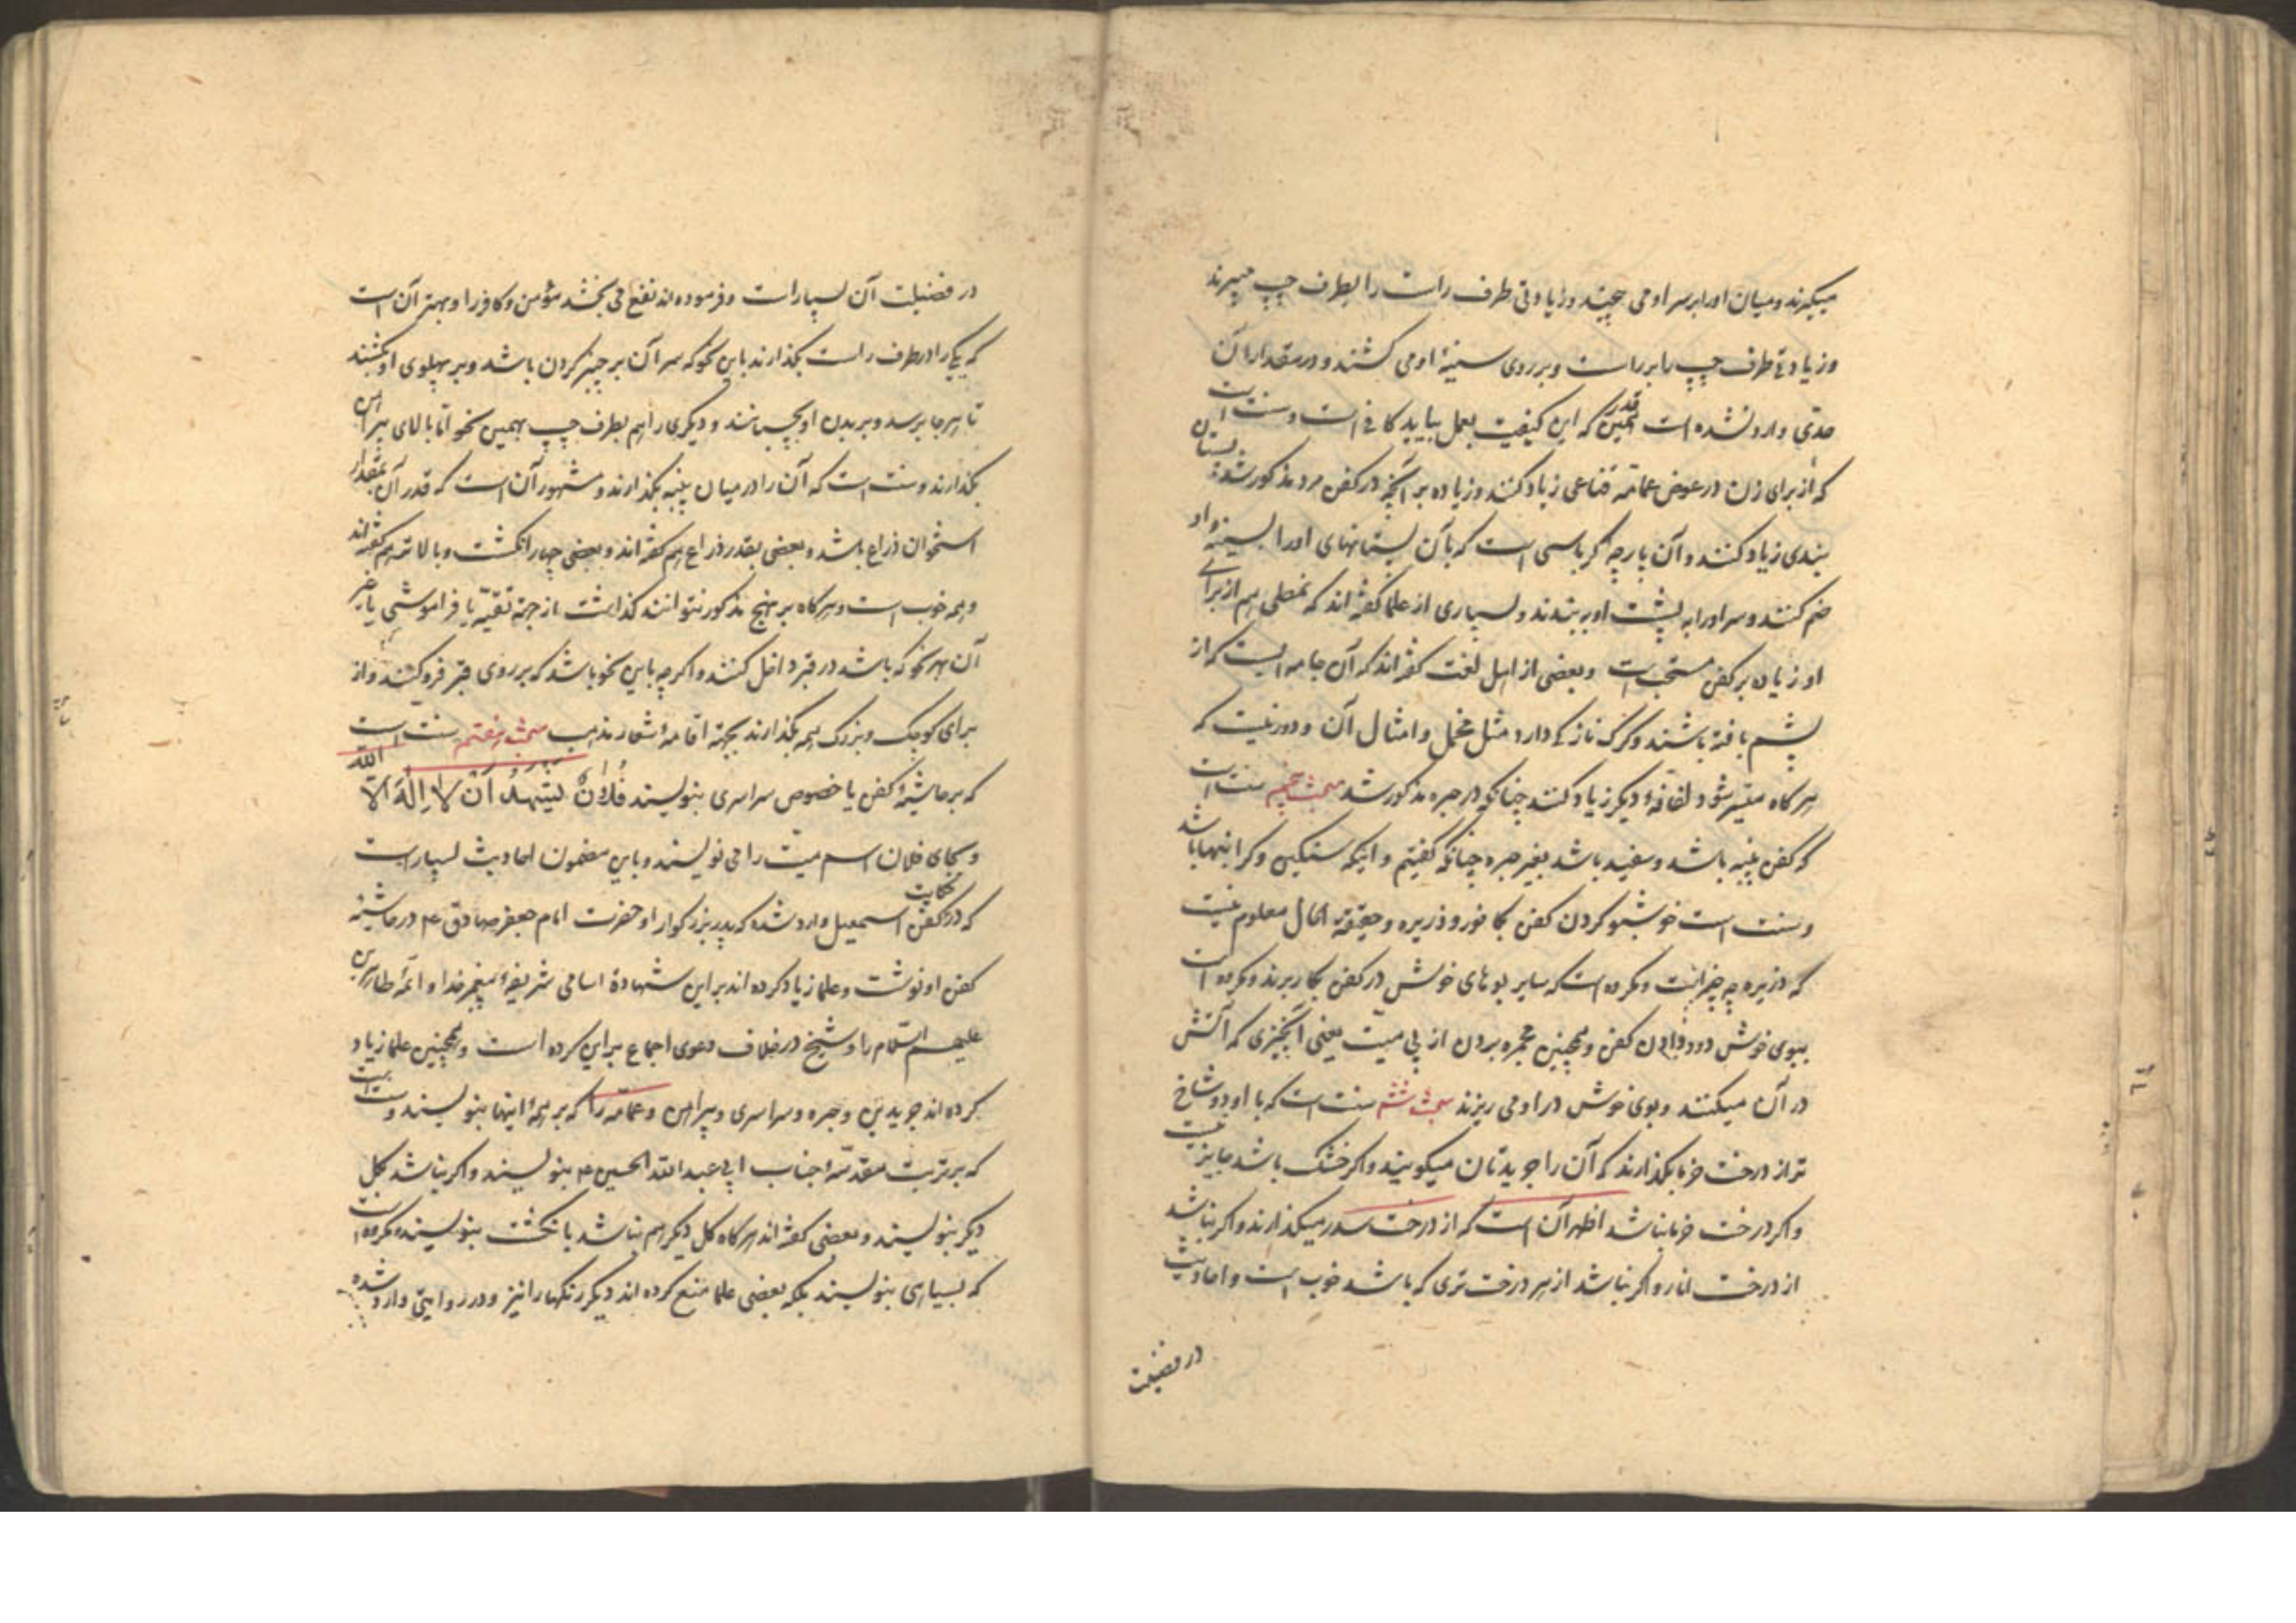 میکیرند و میان او را بر سر او می پیچند و زیادتی طرف راست را بطرف چپ میبرند
و زیادتی طرف چپ را بر راست و بر روی سینهٔ او می کشند و در مقدار آن
حدّی وارد نشده است همین قدر که این کیفیت بعمل بیاید کافی است و سنت است
که از برای زن در عوض عمامه قناعی زیاد کنند و زیاده بر آنچه در کفن مرد مذکور شد پستان
بندی زیاد کنند و آن پارچه کرباسی است که بآن پستانهای او را بسینهٔ او
ضم کنند و سر او را به پشت او ببندند و بسیاری از علما کفته اند که نمطی هم از برای
او زیاده بر کفن مستحب است و بعضی از اهل لغت کفته اند که آن جامه ایست که از
پشم بافته باشند و کرک نازکی دارد مثل مخمل و امثال آن و دور نیست که
هر کاه میسّر شود لفافهٔ دیکر زیاد کنند چنانکه در حبره مذکور شد مبحث پنجم سنت است
که کفن پنبه باشد و سفید باشد بغیر حبره چنانکه کفتیم و اینکه سنکین و کران بها باشد
و سنت است خوشبو کردن کفن بکافور و ذریره و حقیقة الحال معلوم نیست
که ذریره چه چیز است و مکروه است که سایر بوهای خوش در کفن بکار برند و مکروه است
ببوی خوش دود دادن کفن و همچنین مجمره بردن از پی میت یعنی آنچیزی که آتش
در آن میکنند و بوی خوش در او می ریزند مبحث ششم سنت است که با او دو شاخ
تر از درخت خرما بکذارند که آن را جریدتان میکویند و اکر خشک باشد جایز نیست
و اکر درخت خرما نباشد اظهر آن است که از درخت سدر میکذارند و اکر نباشد
از درخت انار و اکر نباشد از هر درخت تری که باشد خوب است و احادیث
در فضیلت
در فضیلت آن بسیار است و فرموده اند نفع می بخشد مؤمن و کافر را و بهتر آن است
که یکی را در طرف راست بکذارند باین نحو که سر آن بر چنبر کردن باشد و بر پهلوی او بکشند
تا هر جا برسد و ببدن او بچسبانند و دیکری را هم بطرف چپ بهمین نحو امّا بالای پیراهن
بکذارند و سنت است که آن را در میان پنبه بکذارند و مشهور آن است که قدر آن بمقدار
استخوان ذراع باشد و بعضی بقدر ذراع هم کفته اند و بعضی چهار انکشت و بالاتر هم کفته اند
و همه خوب است و هر کاه بر نهج مذکور نتوانند کذاشت از جهة تقیّه یا فراموشی یا غیر
آن بهر نحو که باشد در قبر داخل کنند و اکر چه باین نحو باشد که بر روی قبر فرو کنند و از
برای کوچک و بزرک همه بکذارند بجهة اقامهٔ شعار مذهب مبحث هفتم سنت است
که بر حاشیهٔ کفن یا خصوص سراسری بنویسند فُلانٌ یَشهدُ اَنْ لا اِلٰهَ اِلّا اللّه
و بجای فلان اسم میّت را می نویسند و باین مضمون احادیث بسیار است
که در حکایت کفن اسمعیل وارد شده که پدر بزرکوار او حضرت امام جعفر صادق ع در حاشیه
کفن او نوشت و علما زیاد کرده اند بر این شهادة اسامی شریفهٔ پیغمبر خدا و ائمّهٔ طاهرین
علیهم السّلام را و شیخ در خلاف دعوی اجماع بر این کرده است و همچنین علما زیاد
کرده اند جریدتین و حبره و سراسری و پیراهن و عمّامه را که بر همهٔ اینها بنویسند و سنت است
که بر تربت مقدّسهٔ جناب ابی عبد اللّه الحسین ع بنویسند و اکر نباشد بکل
دیکر بنویسند و بعضی کفته اند هر کاه کل دیکر هم نباشد بانکشت بنویسند و مکروه است
که بسیاهی بنویسند بلکه بعضی علما منع کرده اند دیکر رنکها را نیز و در روایتی وارد شده